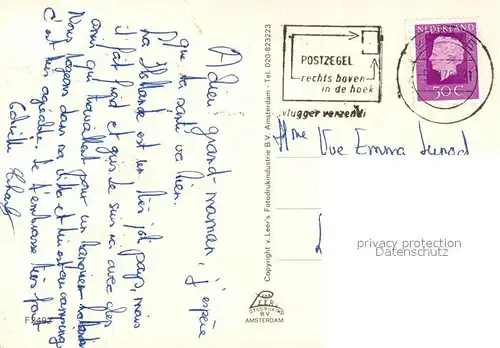 Adieu grand-maman, j'espère
que ta santé va bien.
La Hollande est un très joli pays, mais
il fait froid et puis je suis ici avec des
amis qui travaillent pour un banquier hollandais
Nous logeons dans sa villa et
c'est très agréable. Je t'embrasse très fort
F2492
Copyright v. Leer's Fotodrukindustrie B.V. Amsterdam - Tel. 020-823223
LEER
FOTODRUKIND
B.V.
AMSTERDAM
POSTZEGEL
rechts boven
in de hoek
vlugger verzendt
50C
Mme Vve Emma
privacy protection
Datenschutz